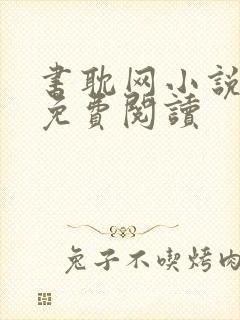 书耽网小說
免費閱讀
兔子不喫烤肉